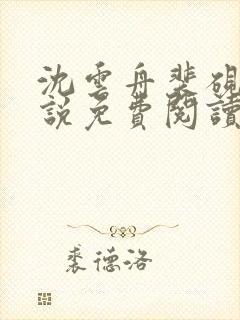 沈雲舟裴硯
說免費閱讀
裘德洛